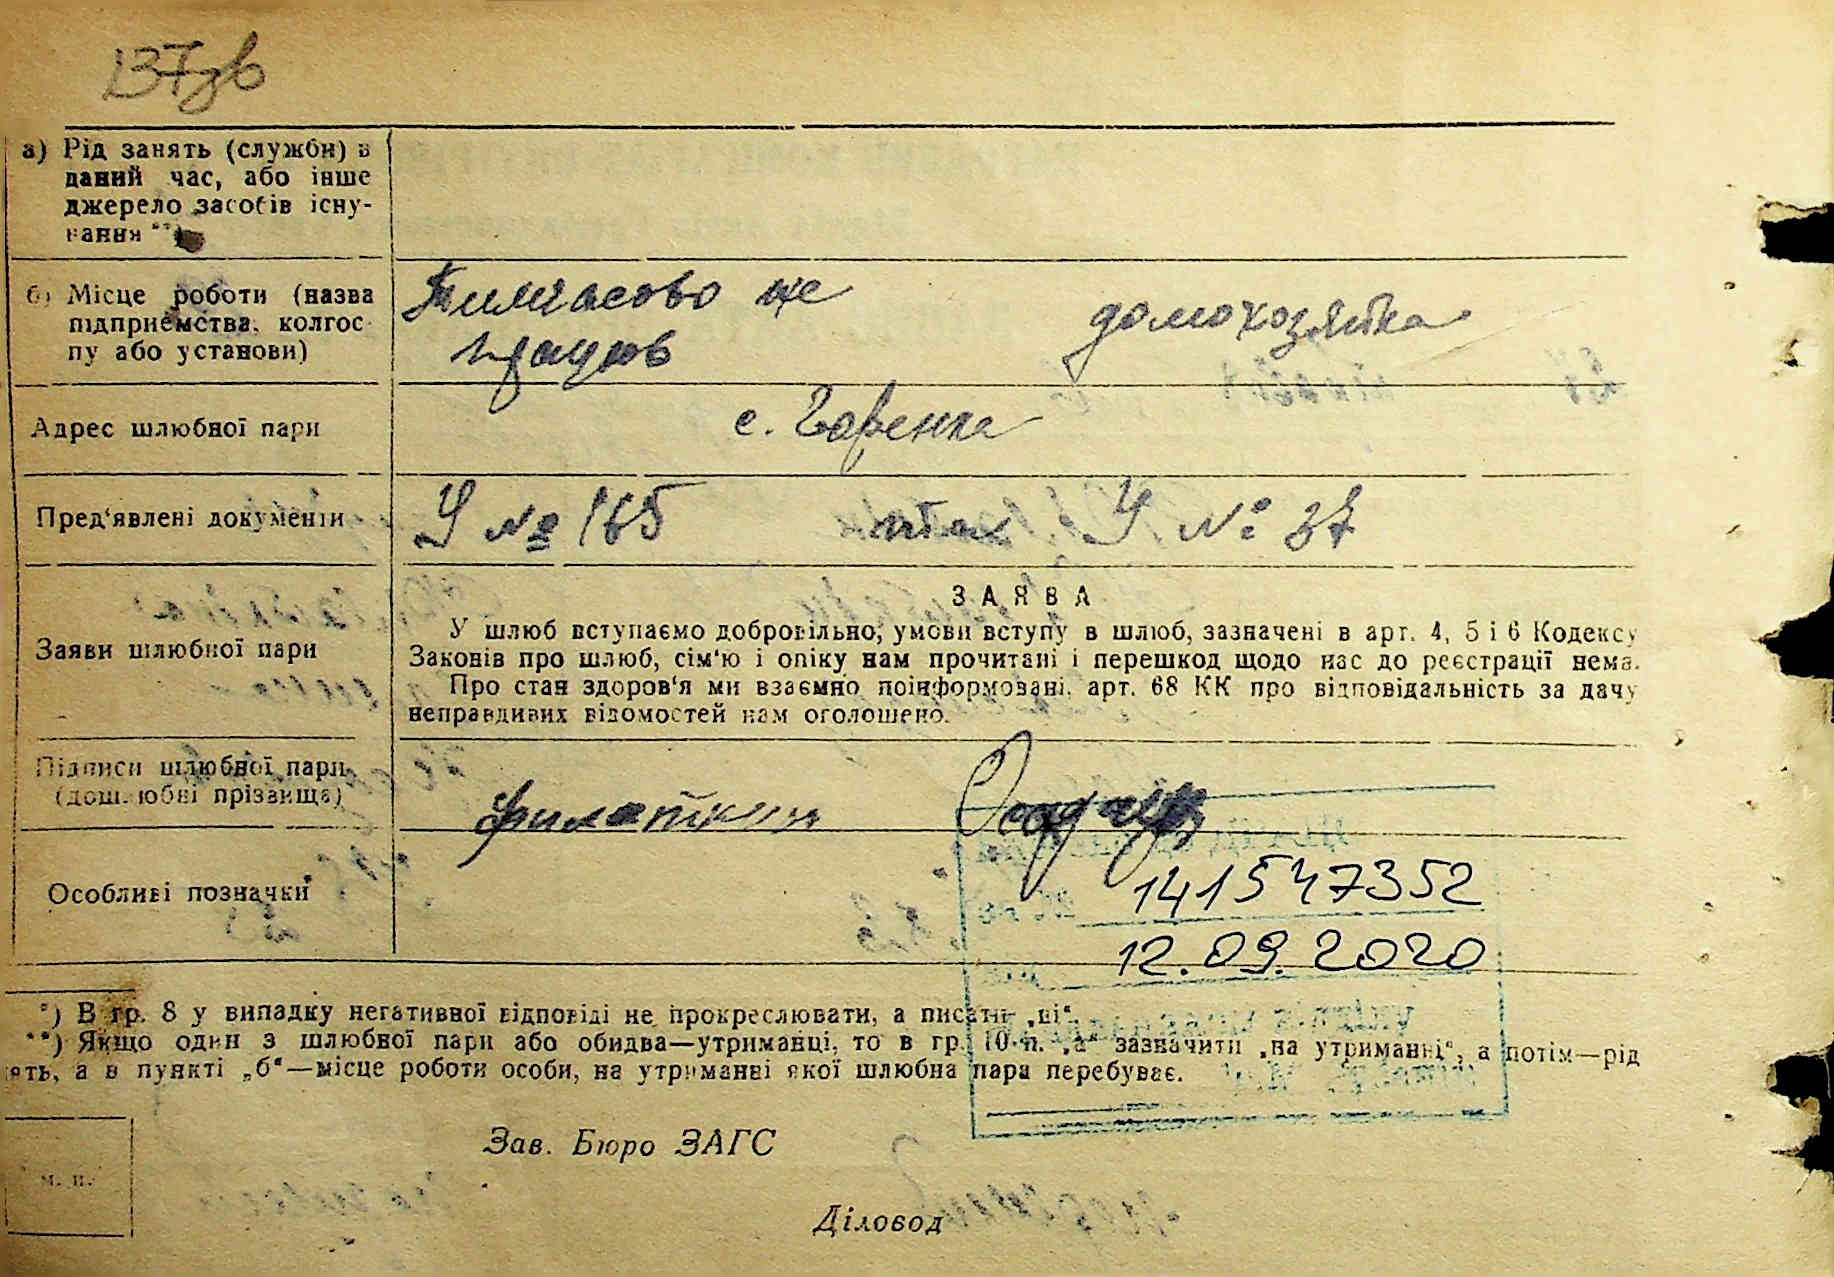 137зв
а) Рід занять (служби) в
даний час, або інше
джерело засобів існу-
вання **)
б) Місце роботи (назва
підприємства, колгос-
пу або установи)
Тимчасово не
працюв
домохозяйка
Адрес шлюбної пари
с. Горенка
Пред'явлені документи
У № 165
У № 37
Заяви шлюбної пари
ЗАЯВА
У шлюб вступаємо добровільно, умови вступу в шлюб, зазначені в арт. 4, 5 і 6 Кодексу
Законів про шлюб, сім'ю і опіку нам прочитані і перешкод щодо нас до реєстрації нема.
Про стан здоров'я ми взаємно поінформовані, арт. 68 КК про відповідальність за дачу
неправдивих відомостей нам оголошено.
Підписи шлюбної пари
(дошлюбні прізвища)
Филаткин
Особливі позначки
141547352
12.09.2020
*) В гр. 8 у випадку негативної відповіді не прокреслювати, а писати „ні“.
**) Якщо один з шлюбної пари або обидва—утриманці, то в гр. 10 п. „а“ зазначити „на утриманні“, а потім—рід
ять, а в пункті „б“—місце роботи особи, на утриманні якої шлюбна пара перебуває.
Зав. Бюро ЗАГС
м. п.
Діловод